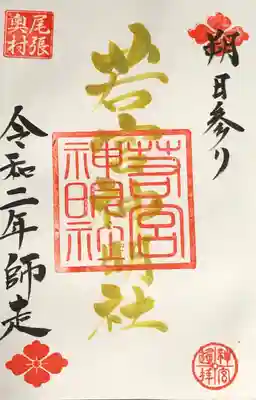 朔日参り
若宮神明社
若宮
神明社
令和二年師走
尾張
奥村
神宮
遙拝